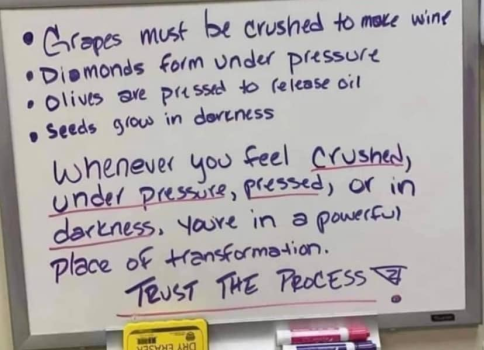 • Grapes must be crushed to make wine
• Diamonds form under pressure
• Olives are pressed to release oil
• Seeds grow in darkness
Whenever you feel crushed,
under pressure, pressed, or in
darkness, you're in a powerful
place of transformation.
TRUST THE PROCESS
DRY ERASER